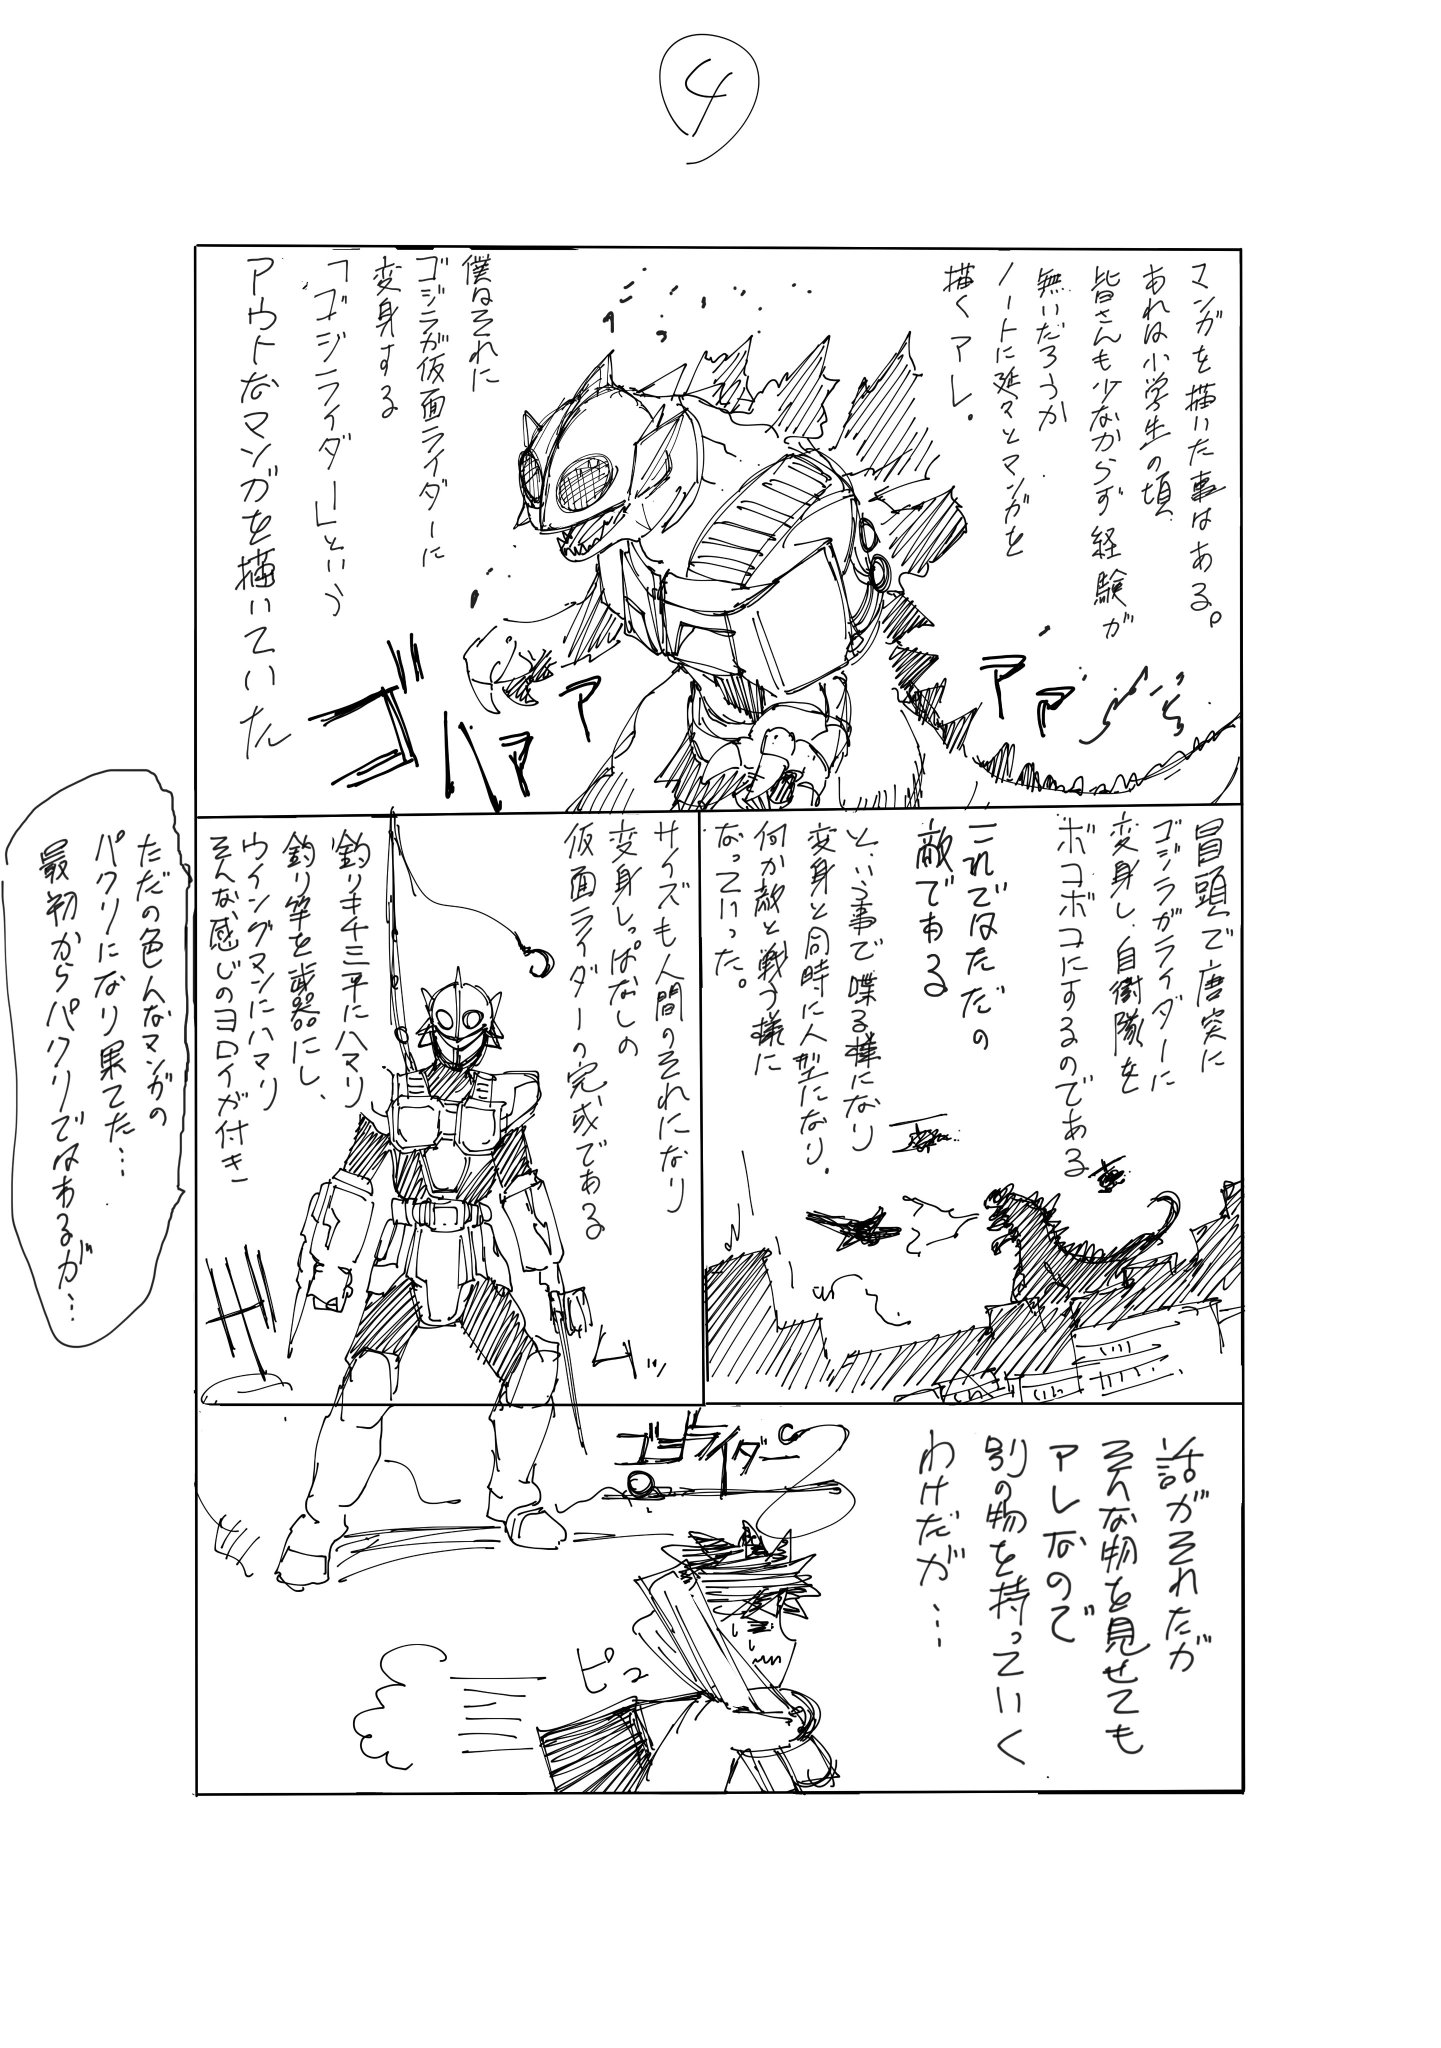 4
マンガを描いた事はある。
あれは小学生の頃
皆さんも少なからず経験が
無いだろうか
ノートに延々とマンガを
描くアレ。
僕はそれに
ゴジラが仮面ライダーに
変身する
「ゴジライダー」という
アウトなマンガを描いていた
ゴ
ハァ
ァ
ァ
ァ
冒頭で唐突に
ゴジラがライダーに
変身し、自衛隊を
ボコボコにするのである
これではただの
敵である
という事で喋る様になり
変身と同時に人型になり、
何か敵と戦う様に
なっていった。
サイズも人間のそれになり
変身しっぱなしの
仮面ライダーの完成である
釣りキチ三平にハマり
釣り竿を武器にし、
ウイングマンにハマり
そんな感じのヨロイが付き
ただの色んなマンガの
パクリになり果てた…
最初からパクリではあるが…
ザ
ムッ
ゴジライダー
話がそれたが
そんな物を見せても
アレなので
別の物を持っていく
わけだが…
ピュー